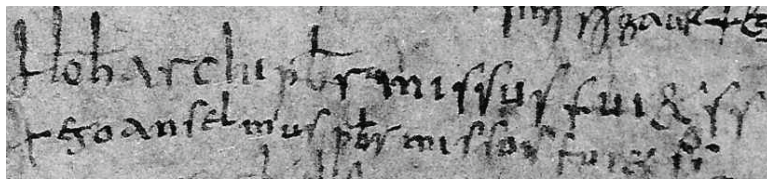 Ioh archipbr missus fui & ss
+ ego anselmus pbr missus fui & ss